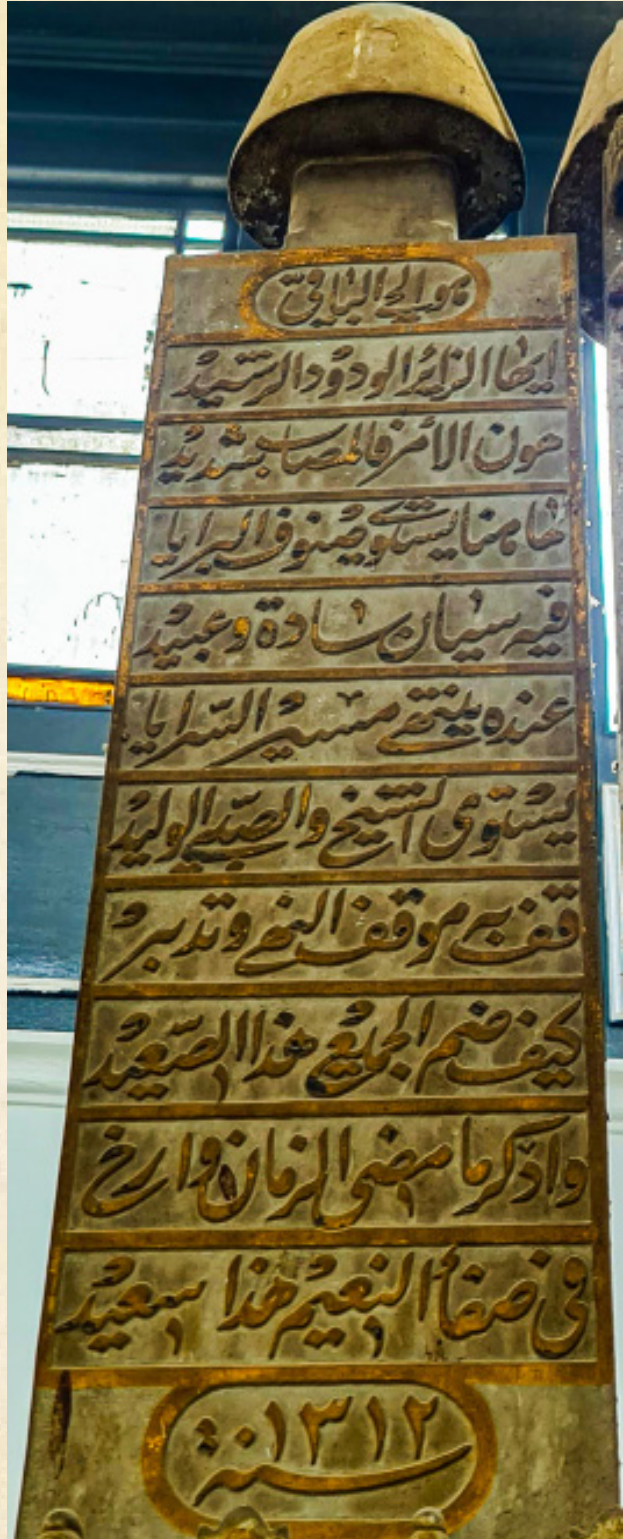 هو الحي الباقي
ايها الزاير الودود الرشيد
هون الأمر فالمصاب شديد
ها هنا يستوي صنوف البرايا
فيه سيان سادة وعبيد
عنده ينتهي مسير السرايا
يستوي الشيخ والصبي الوليد
قف به موقف النهى وتدبر
كيف ضم الجميع هذا الصعيد
واذكر ما مضى الزمان وارخ
في صفاء النعيم هذا سعيد
سنة ١٣١٢